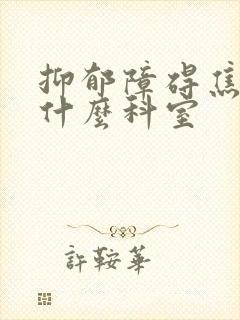 抑郁障碍焦
什麼科室
許鞍華